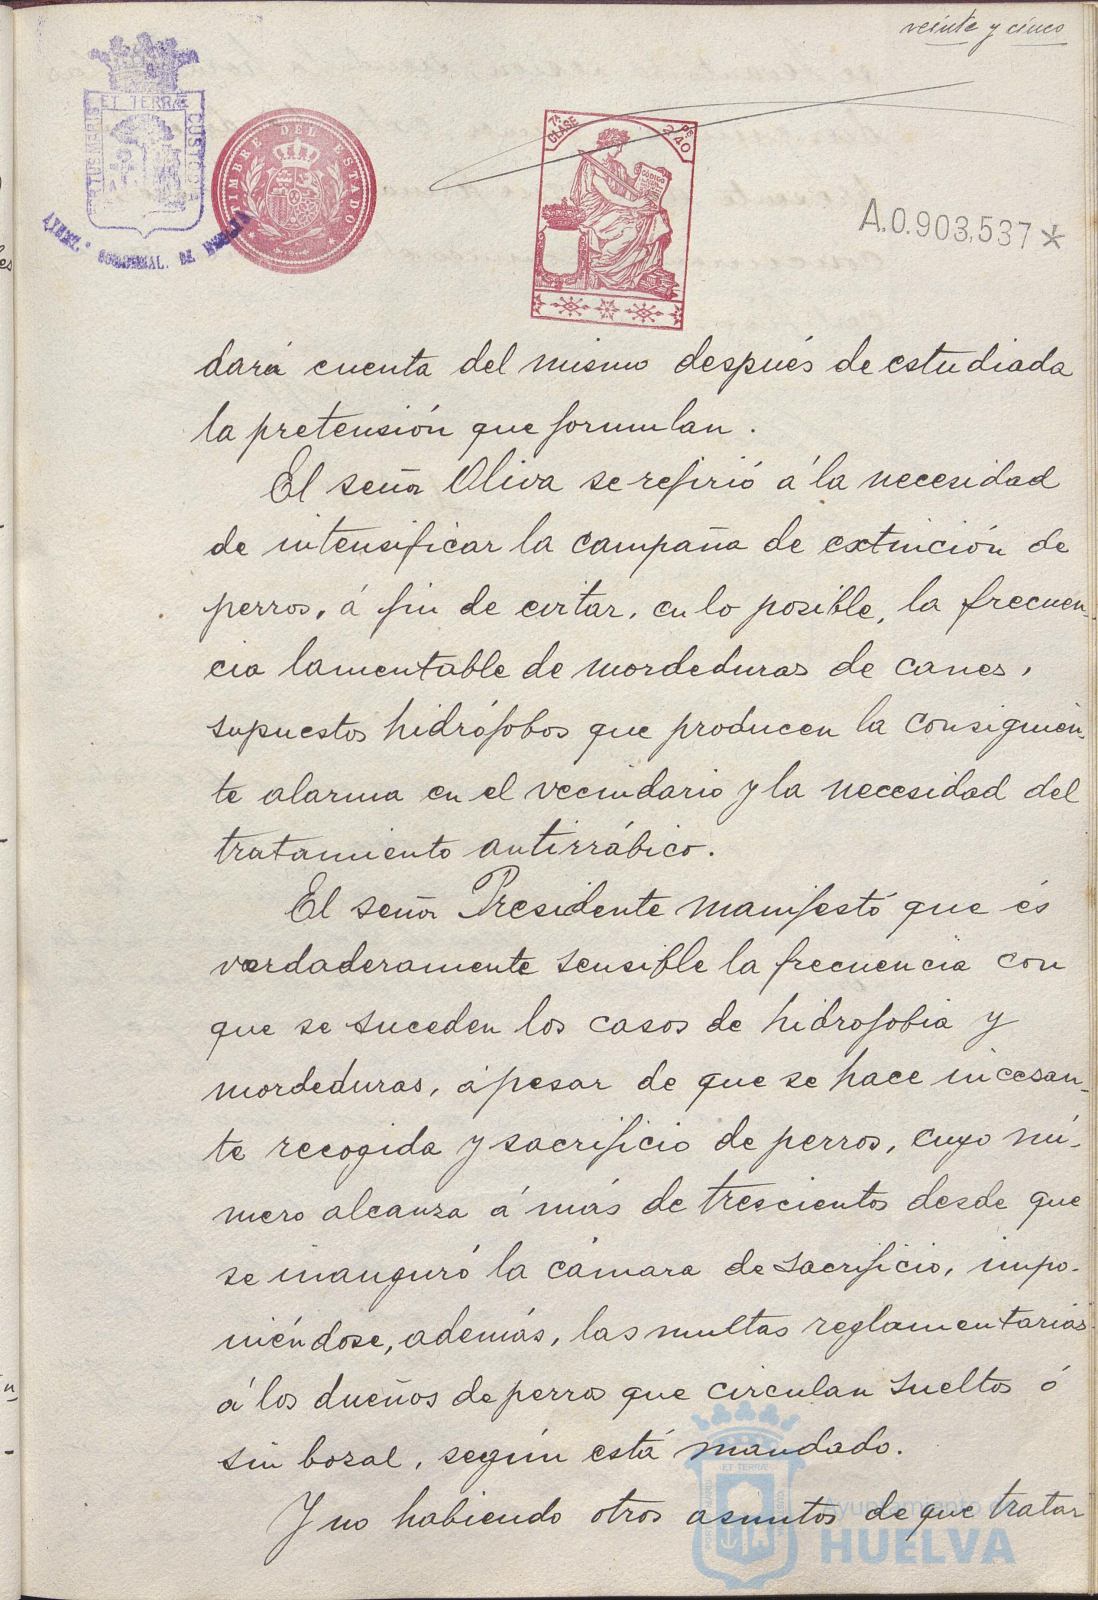 veinte y cinco
ET TERRÆ
CUSTODIA
TIMBRE DEL ESTADO
7ª CLASE
Ps 2'40
CODIGO
A.0.903,537*
dará cuenta del mismo después de estudiada
la pretensión que formulan.
El señor Oliva se refirió á la necesidad
de intensificar la campaña de extinción de
perros, á fin de evitar, en lo posible, la frecuen-
cia lamentable de mordeduras de canes,
supuestos hidrófobos que producen la consiguien-
te alarma en el vecindario y la necesidad del
tratamiento antirrábico.
El señor Presidente manifestó que és
verdaderamente sensible la frecuencia con
que se suceden los casos de hidrofobia y
mordeduras, ápesar de que se hace incesan-
te recogida y sacrificio de perros, cuyo nú-
mero alcanza á más de trescientos desde que
se inauguró la cámara de sacrificio, impo-
niéndose, además, las multas reglamentarias
á los dueños de perros que circulan sueltos ó
sin bozal, según está mandado.
Y no habiendo otros asuntos de que tratar
Ayuntamiento de
HUELVA